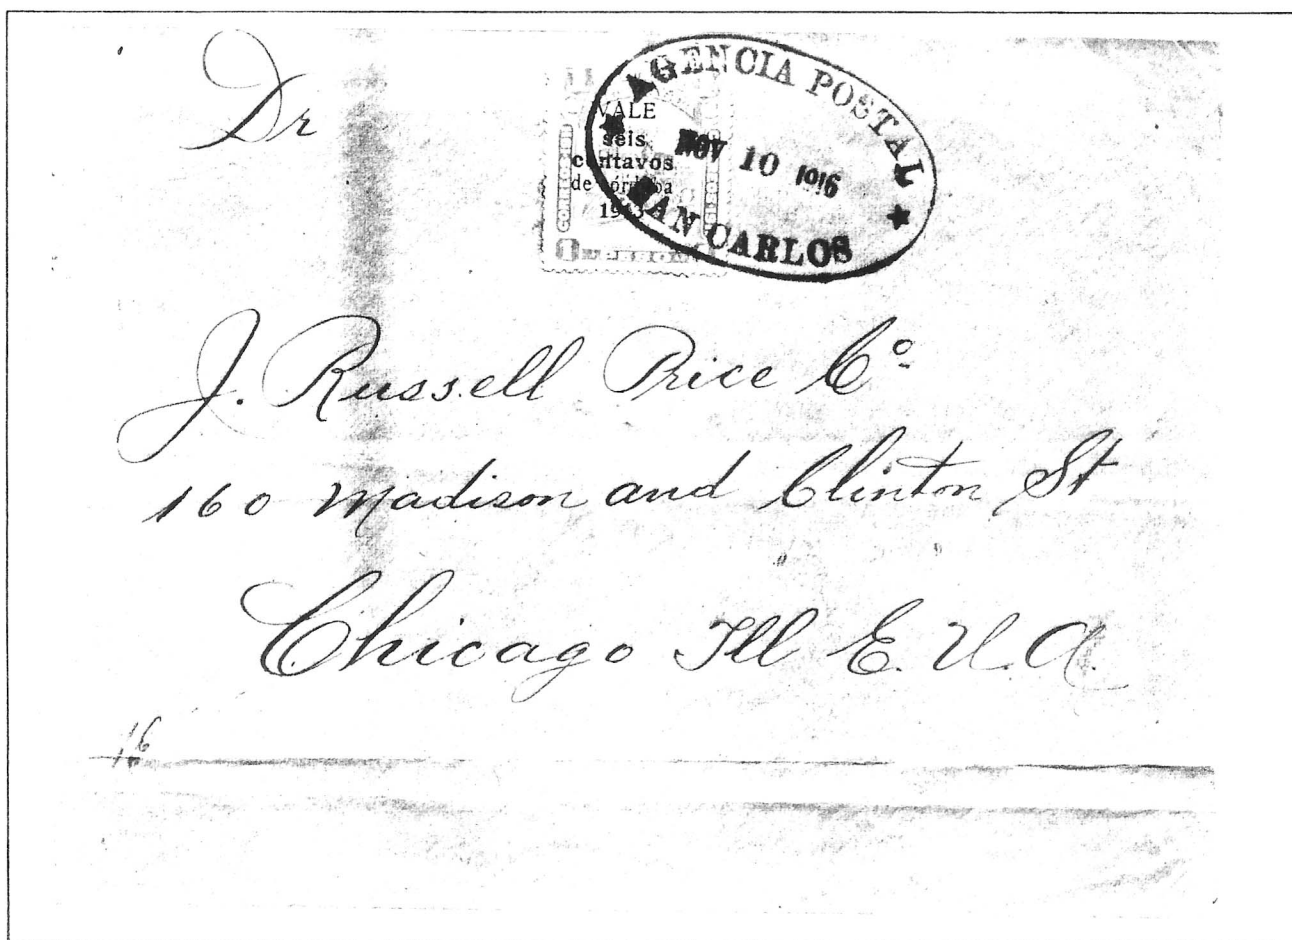 Dr
VALE
seis
centavos
de córdoba
1913
AGENCIA POSTAL
NOV 10 1916
SAN CARLOS
J. Russell Price Co.
160 Madison and Clinton St
Chicago Ill E. U. A.
16